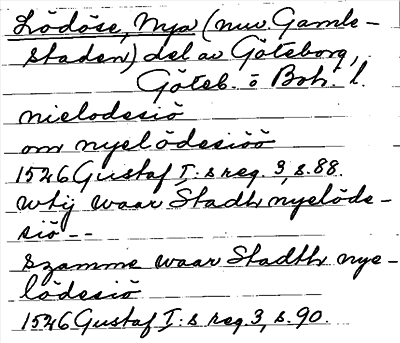 Lödöse, Nya (nuv. Gamle-
staden) del av Göteborg,
Göteb. o Boh. l.
nielodesiö
om nyelödesiöö
1526 Gustaf I:s reg. 3, s. 88.
wtij waar Stadh nyelöde-
siö --
szamme waar Stadth nye-
lödesiö
1526 Gustaf I:s reg. 3, s. 90.